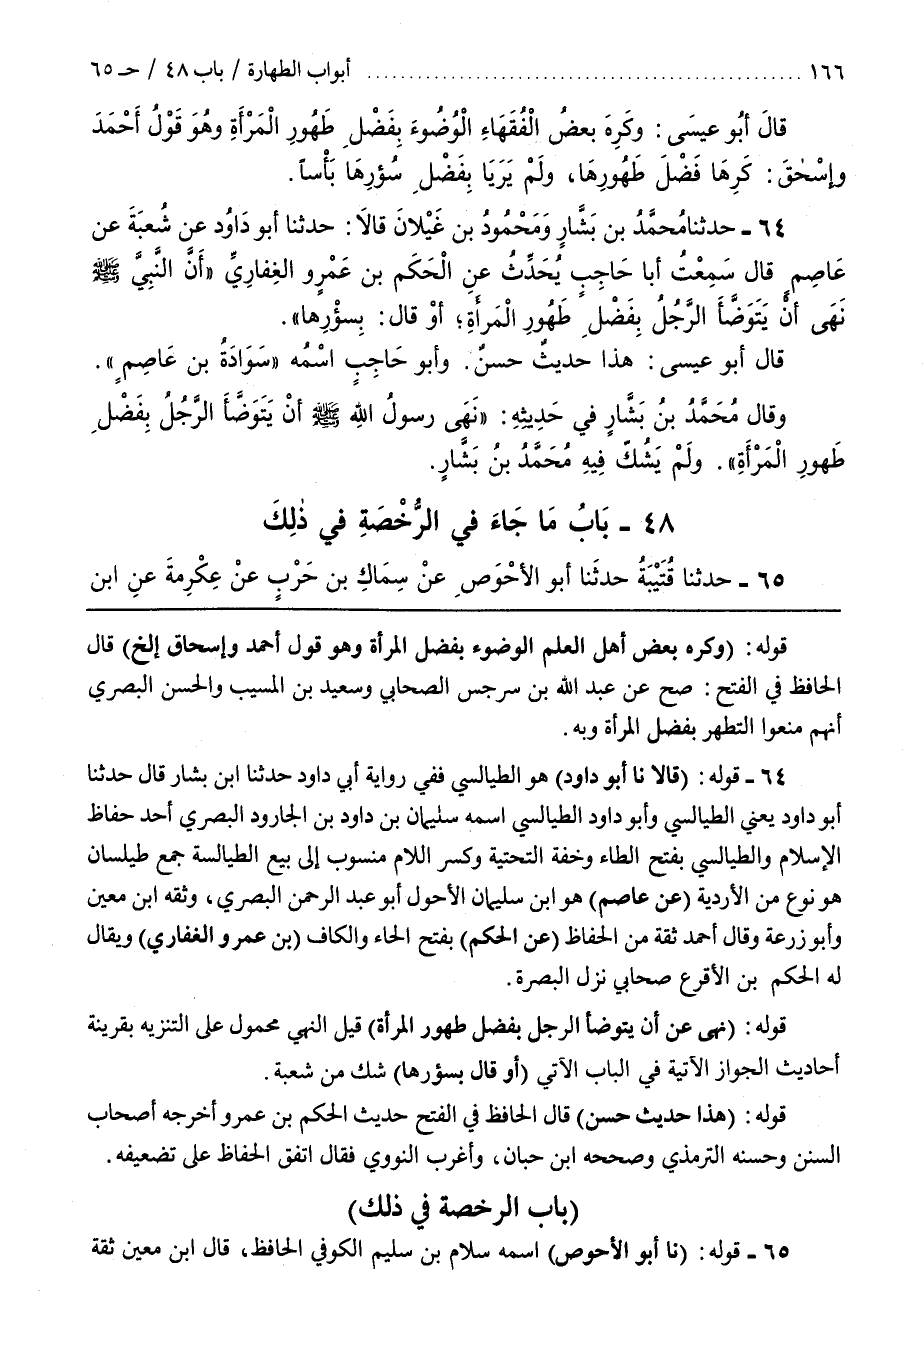 ١٦٦ ........................................ أبواب الطهارة / باب ٤٨ / حـ ٦٥
قالَ أبُو عيسَى: وكَرِهَ بعضُ الْفُقَهَاءِ الْوُضُوءَ بِفَضْلِ طَهُورِ الْمَرْأَةِ وهُوَ قَوْلُ أَحْمَدَ
وإِسْحٰقَ: كَرِهَا فَضْلَ طَهُورِهَا، ولَمْ يَرَيَا بِفَضْلِ سُؤرِهَا بَأْساً.
٦٤ ـ حدثنا مُحمَّدُ بن بَشَّارٍ وَمَحْمُودُ بن غَيْلانَ قالَا: حدثنا أبو دَاوُد عن شُعبَةَ عن
عَاصِمٍ قال سَمِعْتُ أبا حَاجِبٍ يُحَدِّثُ عنِ الْحَكَمِ بن عَمْرٍو الغِفارِيِّ «أَنَّ النَّبِيَّ ﷺ
نَهَى أنْ يَتَوَضَّأَ الرَّجُلُ بِفَضْلِ طَهُورِ الْمَرأَةِ؛ أوْ قال: بِسؤْرِها».
قال أبو عيسى: هذا حديثٌ حسنٌ. وأبو حَاجِبٍ اسْمُه «سَوَادَةُ بن عَاصِمٍ».
وقال مُحَمَّدُ بنُ بَشَّارٍ في حَدِيثِهِ: «نَهَى رسولُ اللهِ ﷺ أنْ يَتَوَضَّأَ الرَّجُلُ بِفَضْلِ
طَهورِ الْمَرْأَةِ». ولَمْ يَشُكّ فِيهِ مُحَمَّدُ بنُ بَشَّارٍ.
٤٨ ـ بَابُ مَا جَاءَ في الرُّخْصَةِ في ذٰلِكَ
٦٥ ـ حدثنا قُتَيْبَةُ حدثَنا أبو الأحْوَصِ عنْ سِمَاكِ بن حَرْبٍ عنْ عِكْرِمةَ عنِ ابن
قوله: (وكره بعض أهل العلم الوضوء بفضل المرأة وهو قول أحمد وإسحاق إلخ) قال
الحافظ في الفتح: صح عن عبد الله بن سرجس الصحابي وسعيد بن المسيب والحسن البصري
أنهم منعوا التطهر بفضل المرأة وبه.
٦٤ ـ قوله: (قالا نا أبو داود) هو الطيالسي ففي رواية أبي داود حدثنا ابن بشار قال حدثنا
أبو داود يعني الطيالسي وأبو داود الطيالسي اسمه سليمان بن داود بن الجارود البصري أحد حفاظ
الإسلام والطيالسي بفتح الطاء وخفة التحتية وكسر اللام منسوب إلى بيع الطيالسة جمع طيلسان
هو نوع من الأردية (عن عاصم) هو ابن سليمان الأحول أبو عبد الرحمن البصري، وثقه ابن معين
وأبو زرعة وقال أحمد ثقة من الحفاظ (عن الحكم) بفتح الحاء والكاف (بن عمرو الغفاري) ويقال
له الحكم بن الأقرع صحابي نزل البصرة.
قوله: (نهى عن أن يتوضأ الرجل بفضل طهور المرأة) قيل النهي محمول على التنزيه بقرينة
أحاديث الجواز الآتية في الباب الآتي (أو قال بسؤرها) شك من شعبة.
قوله: (هذا حديث حسن) قال الحافظ في الفتح حديث الحكم بن عمرو أخرجه أصحاب
السنن وحسنه الترمذي وصححه ابن حبان، وأغرب النووي فقال اتفق الحفاظ على تضعيفه.
(باب الرخصة في ذلك)
٦٥ ـ قوله: (نا أبو الأحوص) اسمه سلام بن سليم الكوفي الحافظ، قال ابن معين ثقة